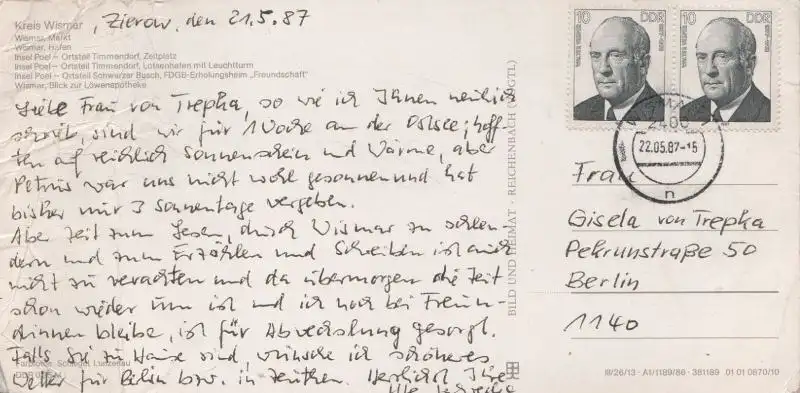 Kreis Wismar, Zierow, den 21.5.87
Wismar, Markt
Wismar, Hafen
Insel Poel – Ortsteil Timmendorf, Zeltplatz
Insel Poel – Ortsteil Timmendorf, Lotsenhafen mit Leuchtturm
Insel Poel – Ortsteil Schwarzer Busch, FDGB-Erholungsheim „Freundschaft"
Wismar, Blick zur Löwenapotheke
Liebe Frau von Trepka, so wie ich Ihnen neulich
schrieb, sind wir für 1 Woche an der Ostsee; hoff-
ten auf reichlich Sonnenschein und Wärme, aber
Petrus war uns nicht wohl gesonnen und hat
bisher nur 3 Sonnentage vergeben.
Aber Zeit zum Lesen, durch Wismar zu schlen-
dern und zum Erzählen und Schreiben ist auch
nicht zu verachten und da übermorgen die Zeit
schon wieder um ist und ich noch bei Freun-
dinnen bleibe, ist für Abwechslung gesorgt.
Falls Sie zu Hause sind, wünsche ich schöneres
Wetter für Berlin bzw. in Zeuthen. Herzlichst Ihre
Farbfotos: Schlegel Lunzenau
BILD UND HEIMAT · REICHENBACH (VOGTL)
10 DDR
10 DDR
2400
22.05.87-15
n
Frau
Gisela von Trepka
Pekrunstraße 50
Berlin
1140
III/26/13 · A1/1189/86 · 381189 01 01 0870/10